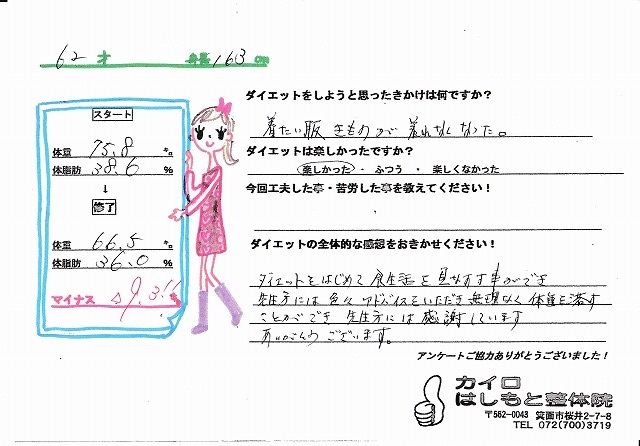 62才 身長163cm
スタート
体重 75.8 キロ
体脂肪 38.6 %
↓
終了
体重 66.5 キロ
体脂肪 36.0 %
マイナス △9.3!!
ダイエットをしようと思ったきかけは何ですか?
着たい服 きものが着れなくなった。
ダイエットは楽しかったですか?
楽しかった ・ ふつう ・ 楽しくなかった
今回工夫した事・苦労した事を教えてください!
ダイエットの全体的な感想をおきかせください!
ダイエットをはじめて食生活を見なおす事ができ
先生方には色々アドバイスをいただき無理なく体重を落す
ことができ 先生方には感謝しています
ありがとうございます。
アンケートご協力ありがとうございました!
カイロ
はしもと整体院
〒562-0043 箕面市桜井2-7-8
TEL 072(700)3719